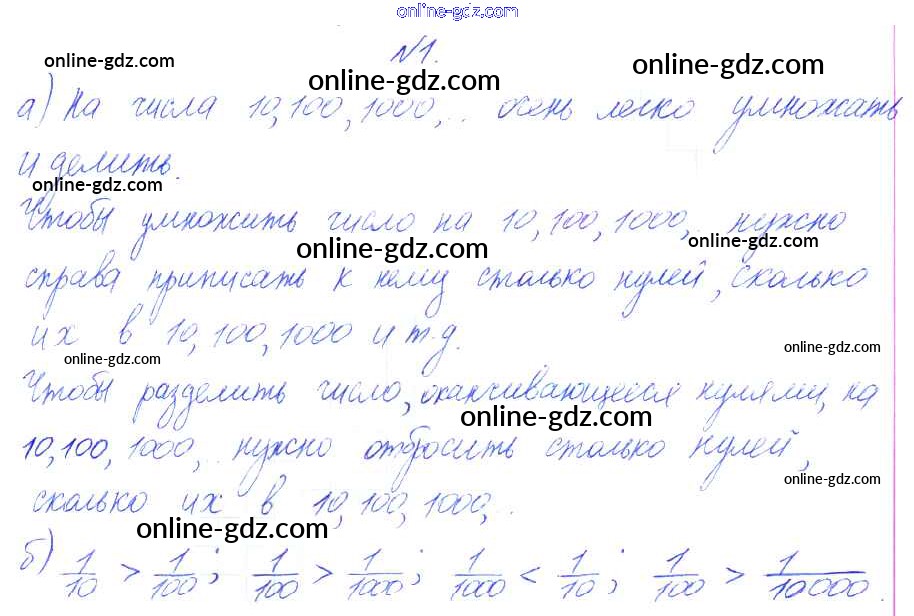 online-gdz.com
online-gdz.com №1. online-gdz.com online-gdz.com
а) На числа 10, 100, 1000,.. очень легко умножать
и делить.
online-gdz.com
Чтобы умножить число на 10, 100, 1000, нужно
online-gdz.com online-gdz.com
справа приписать к нему столько нулей, сколько
их в 10, 100, 1000 и т.д.
online-gdz.com online-gdz.com
Чтобы разделить число, оканчивающееся нулями, на
online-gdz.com
10, 100, 1000, нужно отбросить столько нулей,
online-gdz.com
сколько их в 10, 100, 1000,..
online-gdz.com
б) 1/10 > 1/100; 1/100 > 1/1000; 1/1000 < 1/10; 1/100 > 1/10000.